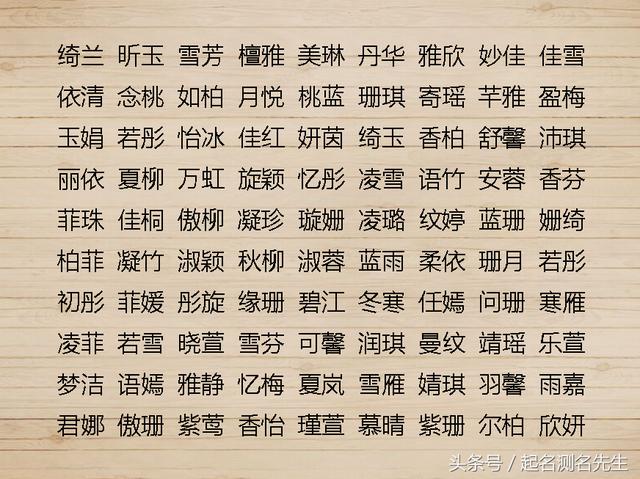 绮兰 昕玉 雪芳 檀雅 美琳 丹华 雅欣 妙佳 佳雪
依清 念桃 如柏 月悦 桃蓝 珊琪 寄瑶 芊雅 盈梅
玉娟 若彤 怡冰 佳红 妍茵 绮玉 香柏 舒馨 沛琪
丽依 夏柳 万虹 旋颖 忆彤 凌雪 语竹 安蓉 香芬
菲珠 佳桐 傲柳 凝珍 璇姗 凌璐 纹婷 蓝珊 姗绮
柏菲 凝竹 淑颖 秋柳 淑蓉 蓝雨 柔依 珊月 若彤
初彤 菲媛 彤旋 缘珊 碧江 冬寒 任嫣 问珊 寒雁
凌菲 若雪 晓萱 雪芬 可馨 润琪 曼纹 靖瑶 乐萱
梦洁 语嫣 雅静 忆梅 夏岚 雪雁 婧琪 羽馨 雨嘉
君娜 傲珊 紫莺 香怡 瑾萱 慕晴 紫珊 尔柏 欣妍
头条号／起名测名先生